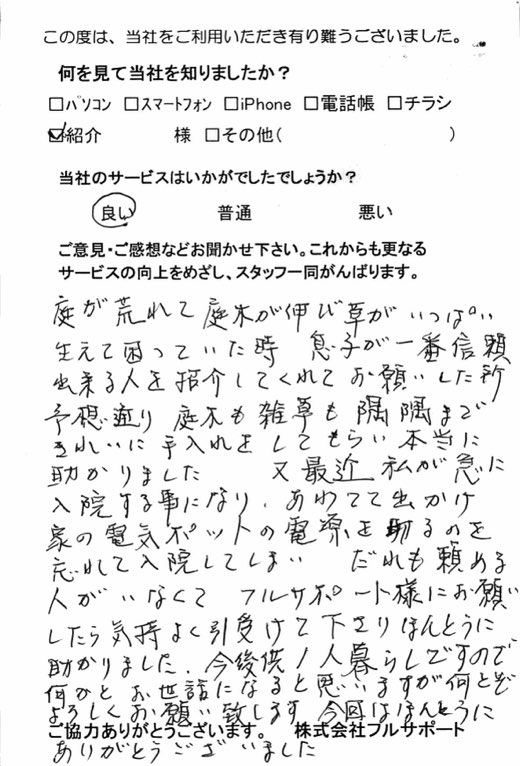 この度は、当社をご利用いただき有り難うございました。
何を見て当社を知りましたか？
□パソコン □スマートフォン □iPhone □電話帳 □チラシ
☑紹介 様 □その他( )
当社のサービスはいかがでしたでしょうか？
良い 普通 悪い
ご意見・ご感想などお聞かせ下さい。これからも更なる
サービスの向上をめざし、スタッフ一同がんばります。
庭が荒れて庭木が伸び草がいっぱい
生えて困っていた時 息子が一番信頼
出来る人を紹介してくれてお願いした所
予想通り庭木も雑草も隅隅まで
きれいに手入れをしてもらい本当に
助かりました 又最近私が急に
入院する事になり、あわてて出かけ
家の電気ポットの電源を切るのを
忘れて入院してしまい だれも頼める
人がいなくて フルサポート様にお願い
したら気持よく引受けて下さりほんとうに
助かりました、今後供1人暮らしですので
何かとお世話になると思いますが何とぞ
よろしくお願い致します 今回はほんとうに
ご協力ありがとうございます。 株式会社フルサポート
ありがとうございました